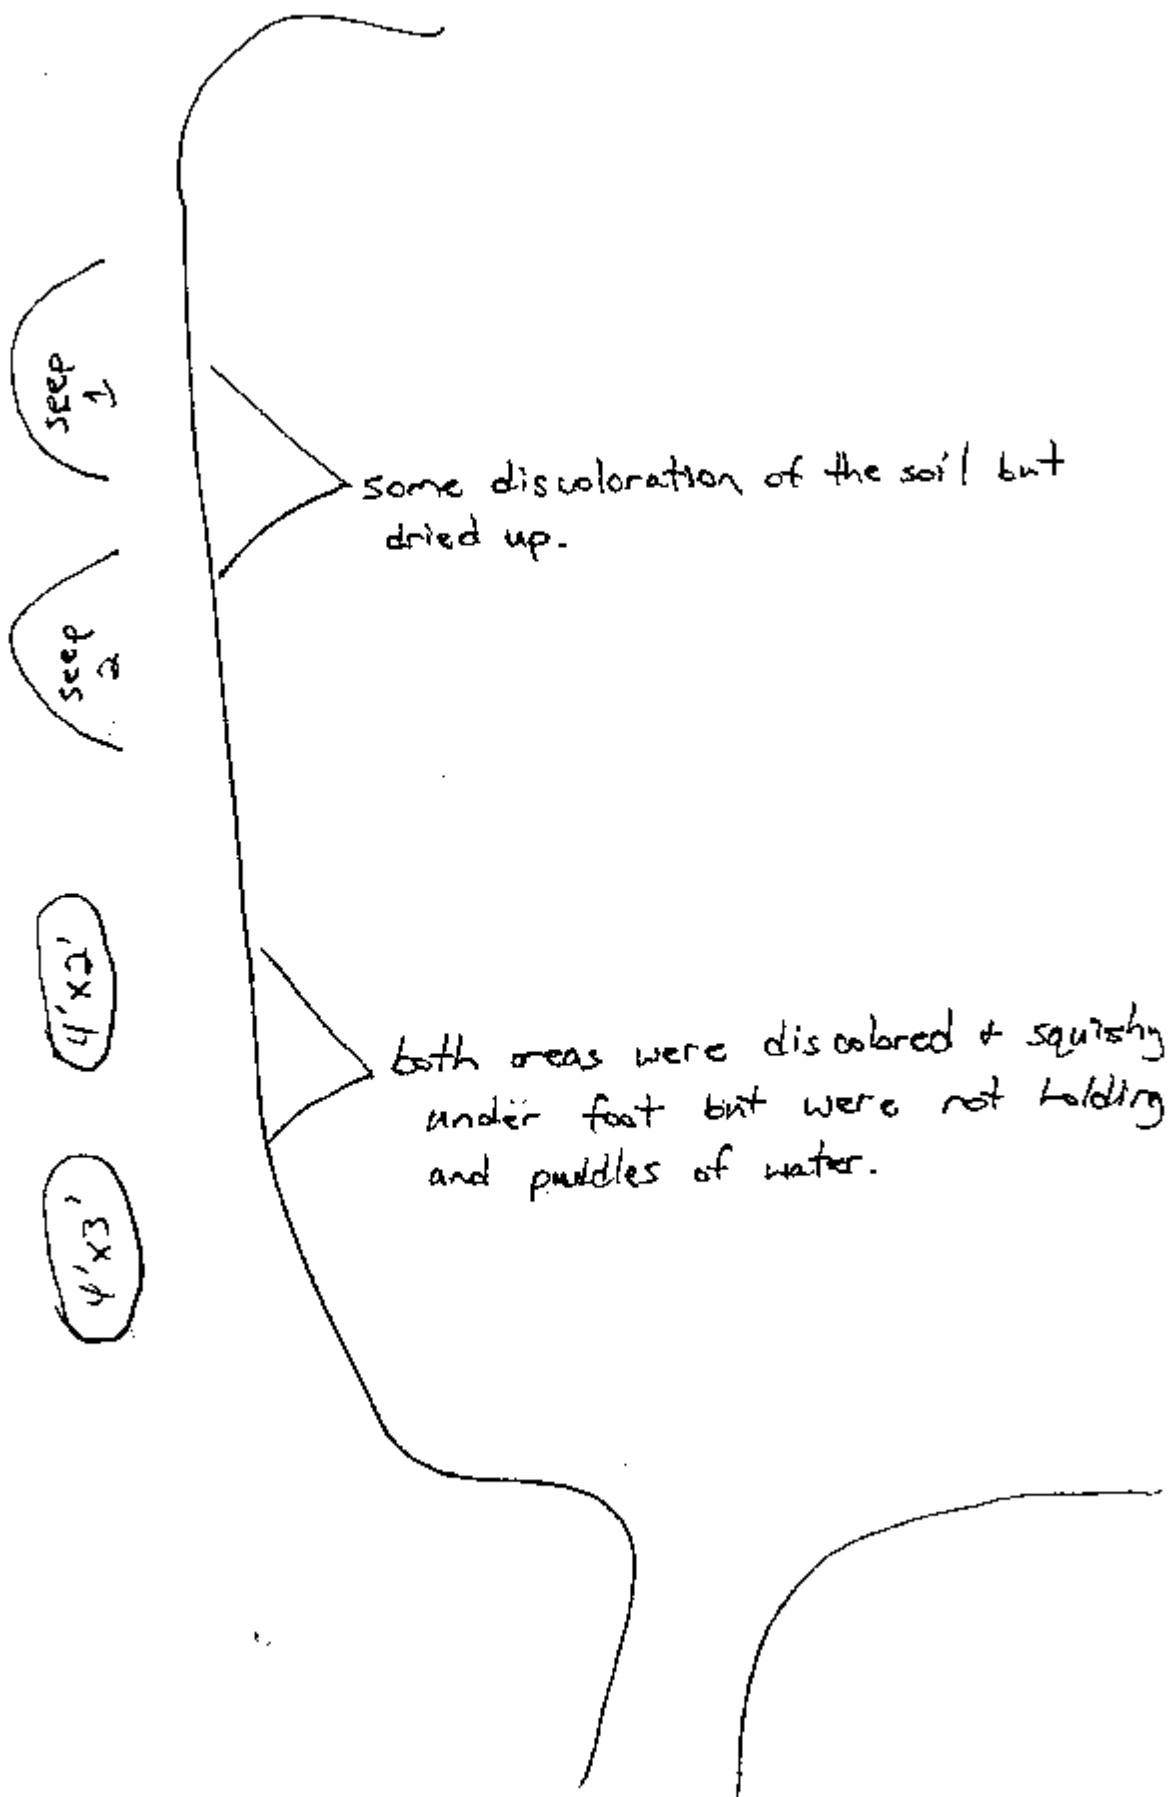 seep
1
some discoloration of the soil but
dried up.
seep
2
4'x2'
both areas were discolored + squishy
under foot but were not holding
and puddles of water.
4'x3'